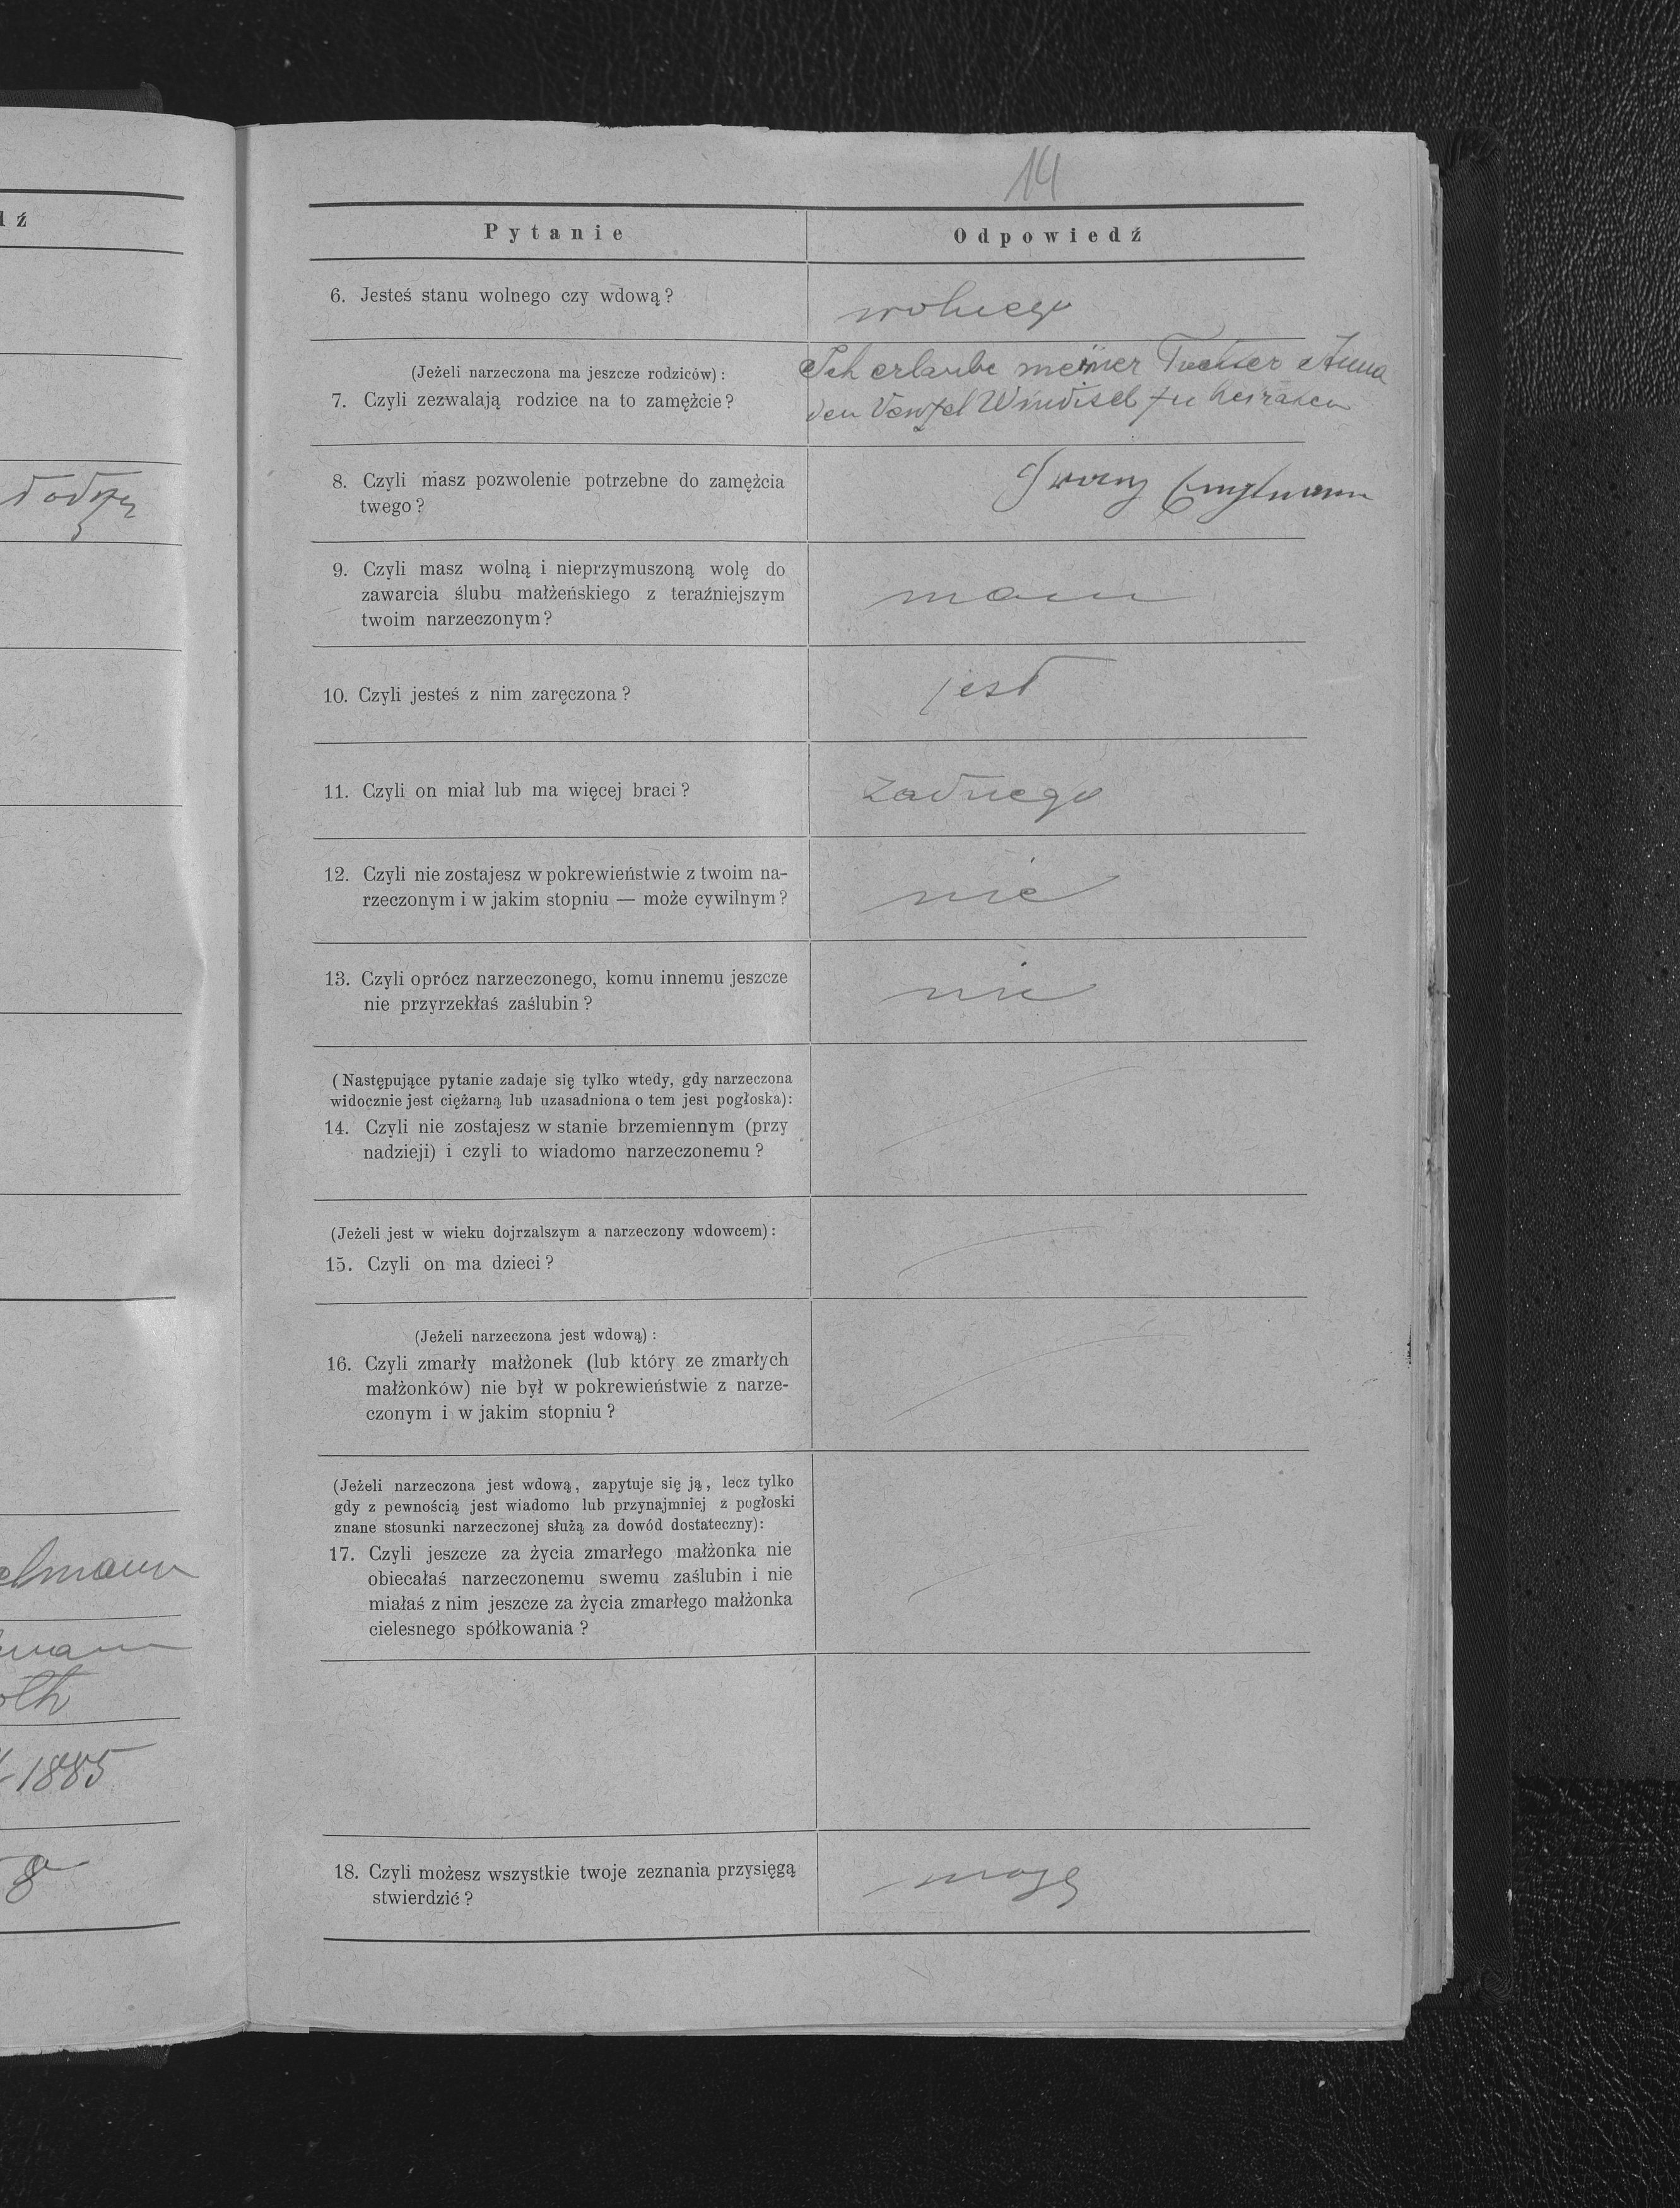 14
dź
Pytanie
Odpowiedź
6. Jesteś stanu wolnego czy wdową?
wolnego
(Jeżeli narzeczona ma jeszcze rodziców):
7. Czyli zezwalają rodzice na to zamężcie?
Ich erlaube meiner Tochter Anna
den Venzel Windisch zu heiraten
8. Czyli masz pozwolenie potrzebne do zamężcia
twego?
Franz Englmann
9. Czyli masz wolną i nieprzymuszoną wolę do
zawarcia ślubu małżeńskiego z teraźniejszym
twoim narzeczonym?
mam
10. Czyli jesteś z nim zaręczona?
jest
11. Czyli on miał lub ma więcej braci?
żadnego
12. Czyli nie zostajesz w pokrewieństwie z twoim na-
rzeczonym i w jakim stopniu — może cywilnym?
nie
13. Czyli oprócz narzeczonego, komu innemu jeszcze
nie przyrzekłaś zaślubin?
nie
(Następujące pytanie zadaje się tylko wtedy, gdy narzeczona
widocznie jest ciężarną lub uzasadniona o tem jest pogłoska):
14. Czyli nie zostajesz w stanie brzemiennym (przy
nadzieji) i czyli to wiadomo narzeczonemu?
(Jeżeli jest w wieku dojrzalszym a narzeczony wdowcem):
15. Czyli on ma dzieci?
(Jeżeli narzeczona jest wdową):
16. Czyli zmarły małżonek (lub który ze zmarłych
małżonków) nie był w pokrewieństwie z narze-
czonym i w jakim stopniu?
(Jeżeli narzeczona jest wdową, zapytuje się ją, lecz tylko
gdy z pewnością jest wiadomo lub przynajmniej z pogłoski
znane stosunki narzeczonej służą za dowód dostateczny):
17. Czyli jeszcze za życia zmarłego małżonka nie
obiecałaś narzeczonemu swemu zaślubin i nie
miałaś z nim jeszcze za życia zmarłego małżonka
cielesnego spółkowania?
elmann
mann
oth
1885
8
18. Czyli możesz wszystkie twoje zeznania przysięgą
stwierdzić?
mogę